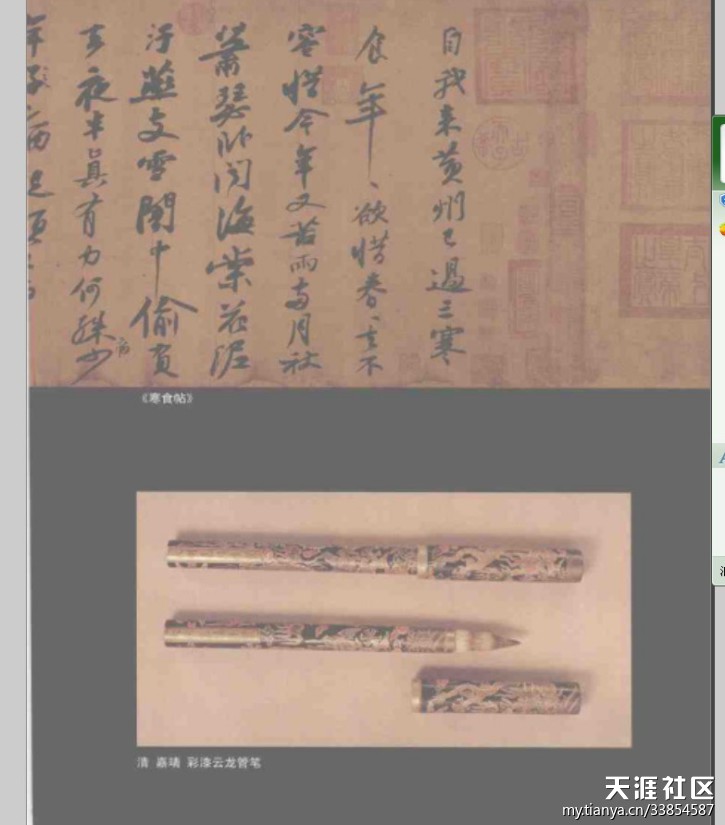 自我來黃州已過三寒
食年、欲惜春、去不
容惜今年又苦雨兩月秋
蕭瑟卧聞海棠花泥
汙燕支雪闇中偷負
去夜半真有力何殊少
病
《寒食帖》
清 嘉靖 彩漆云龙管笔
天涯社区
my.tianya.cn/33854587